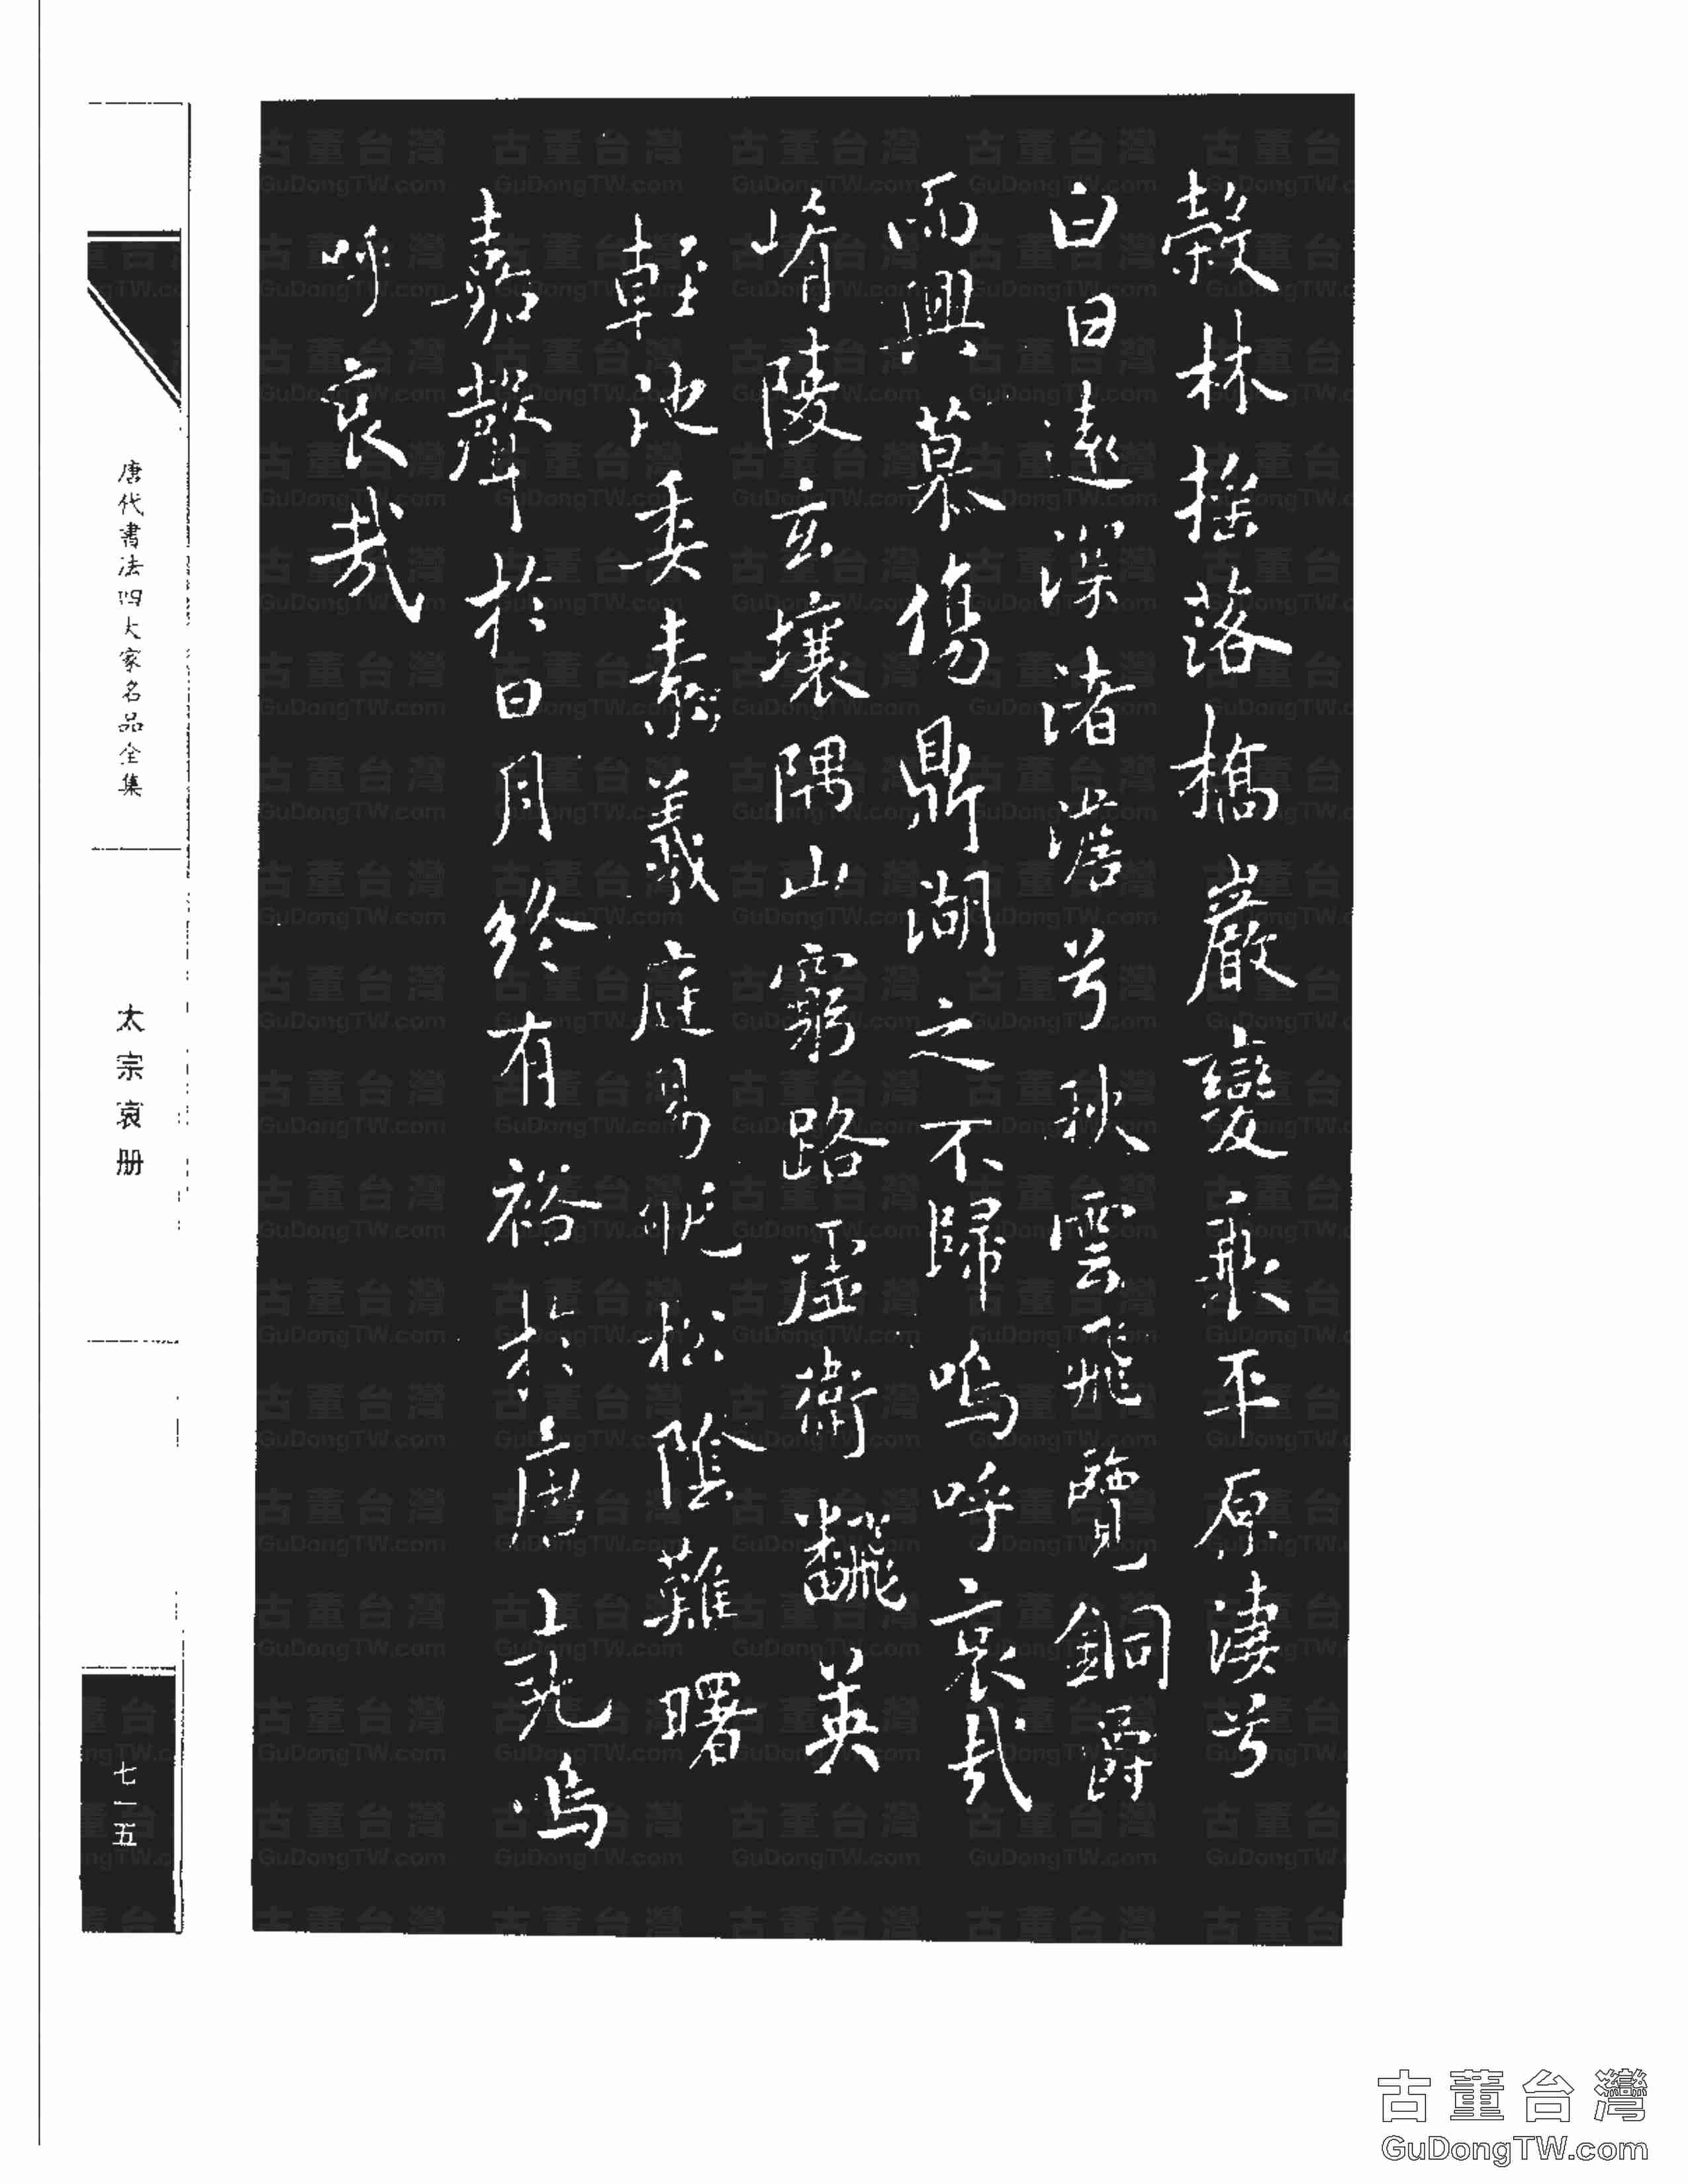 穀林搖落橋巖變衰平原淒兮
白日遠深渚澹兮秋雲飛覽銅爵
而興慕傷鼎湖之不歸嗚呼哀哉
崤陵玄壤隅山窮路虛衛飜英
輕池委素羲庭易恍松陰難曙
嘉聲於日月終有裕於唐堯嗚
呼哀哉
唐代書法四大家名品全集
太宗哀册
七一五
古董台灣
GuDongTW.com